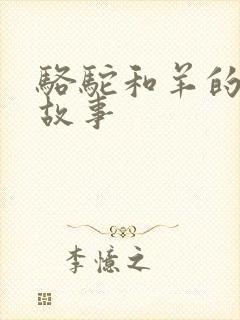 骆駝和羊的
故事
李憶之